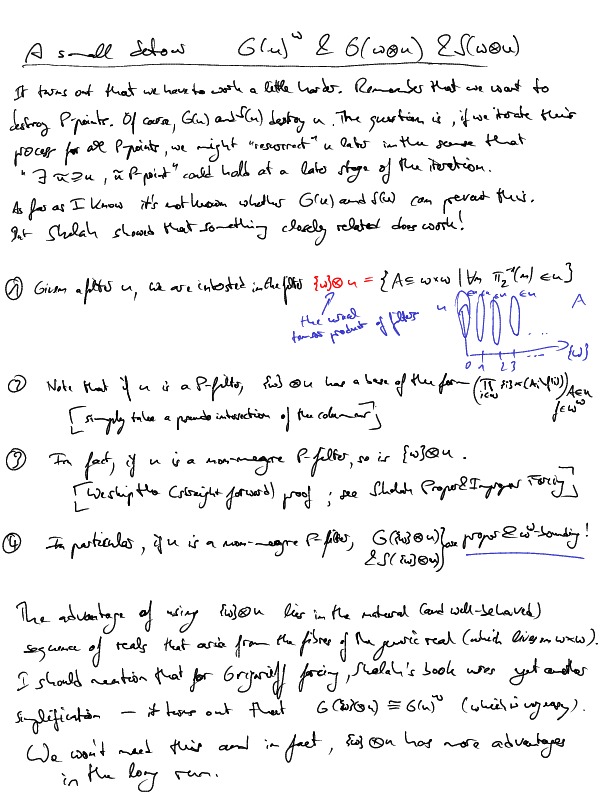 A small detour G(u)^ω & G(ω⊗u) & S(ω⊗u)
It turns out that we have to work a little harder. Remember that we want to
destroy P-points. Of course, G(u) and S(u) destroy u. The question is, if we iterate this
process for all P-points, we might "resurrect" u later in the sense that
"∃ ũ ⊇ u, ũ P-point" could hold at a later stage of the iteration.
As far as I know it's not known whether G(u) and S(u) can prevent this.
But Shelah showed that something closely related does work!
① Given a filter u, we are interested in the filter {ω}⊗u = {A ⊆ ω×ω | ∀n π₂⁻¹(n) ∈ u}
the usual
tensor product of filters
u ∈u ∈u ∈u A
0 1 2 3 ... {ω}
② Note that if u is a P-filter, {ω}⊗u has a base of the form (∏ {i}×(A\f(i)))
i∈ω A∈u
f∈ω^ω
[simply take a pseudo intersection of the columns]
③ In fact, if u is a non-meagre P-filter, so is {ω}⊗u.
[We skip the (straight forward) proof; see Shelah Proper & Improper Forcing]
④ In particular, if u is a non-meagre P-filter, G({ω}⊗u) & S({ω}⊗u) are proper & ω^ω-bounding!
The advantage of using {ω}⊗u lies in the natural (and well-behaved)
sequence of reals that arise from the fibres of the generic real (which lives on ω×ω).
I should mention that for Grigorieff forcing, Shelah's book uses yet another
simplification – it turns out that G({ω}⊗u) ≅ G(u)^ω (which is very easy).
We won't need this and in fact, {ω}⊗u has more advantages
in the long run.